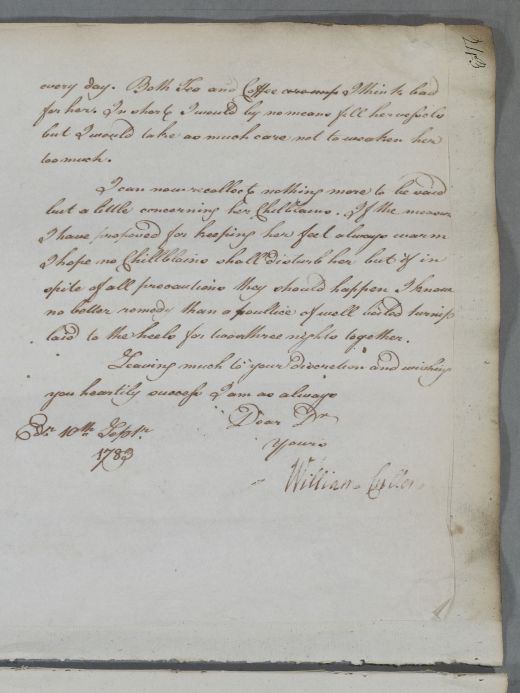 2183
every day. Both Tea and Coffee I think bad
for her. In short I would by no means fill her vessels
but I would take as much care not to weaken her
too much.
I can now recollect nothing more to be said
but a little concerning her Chilblains. If the
I have proposed for keeping her feet always warm
I hope no Chillblains shall disturb her but if in
spite of all precautions they should happen I know
no better remedy than a poultice of well boiled turnips
laid to the heels for two or three nights together.
Leaving much to your discretion and wishing
you heartily success I am as always
Dear Dr
Yours
William Cullen
Edr. 10th Septr.
1783